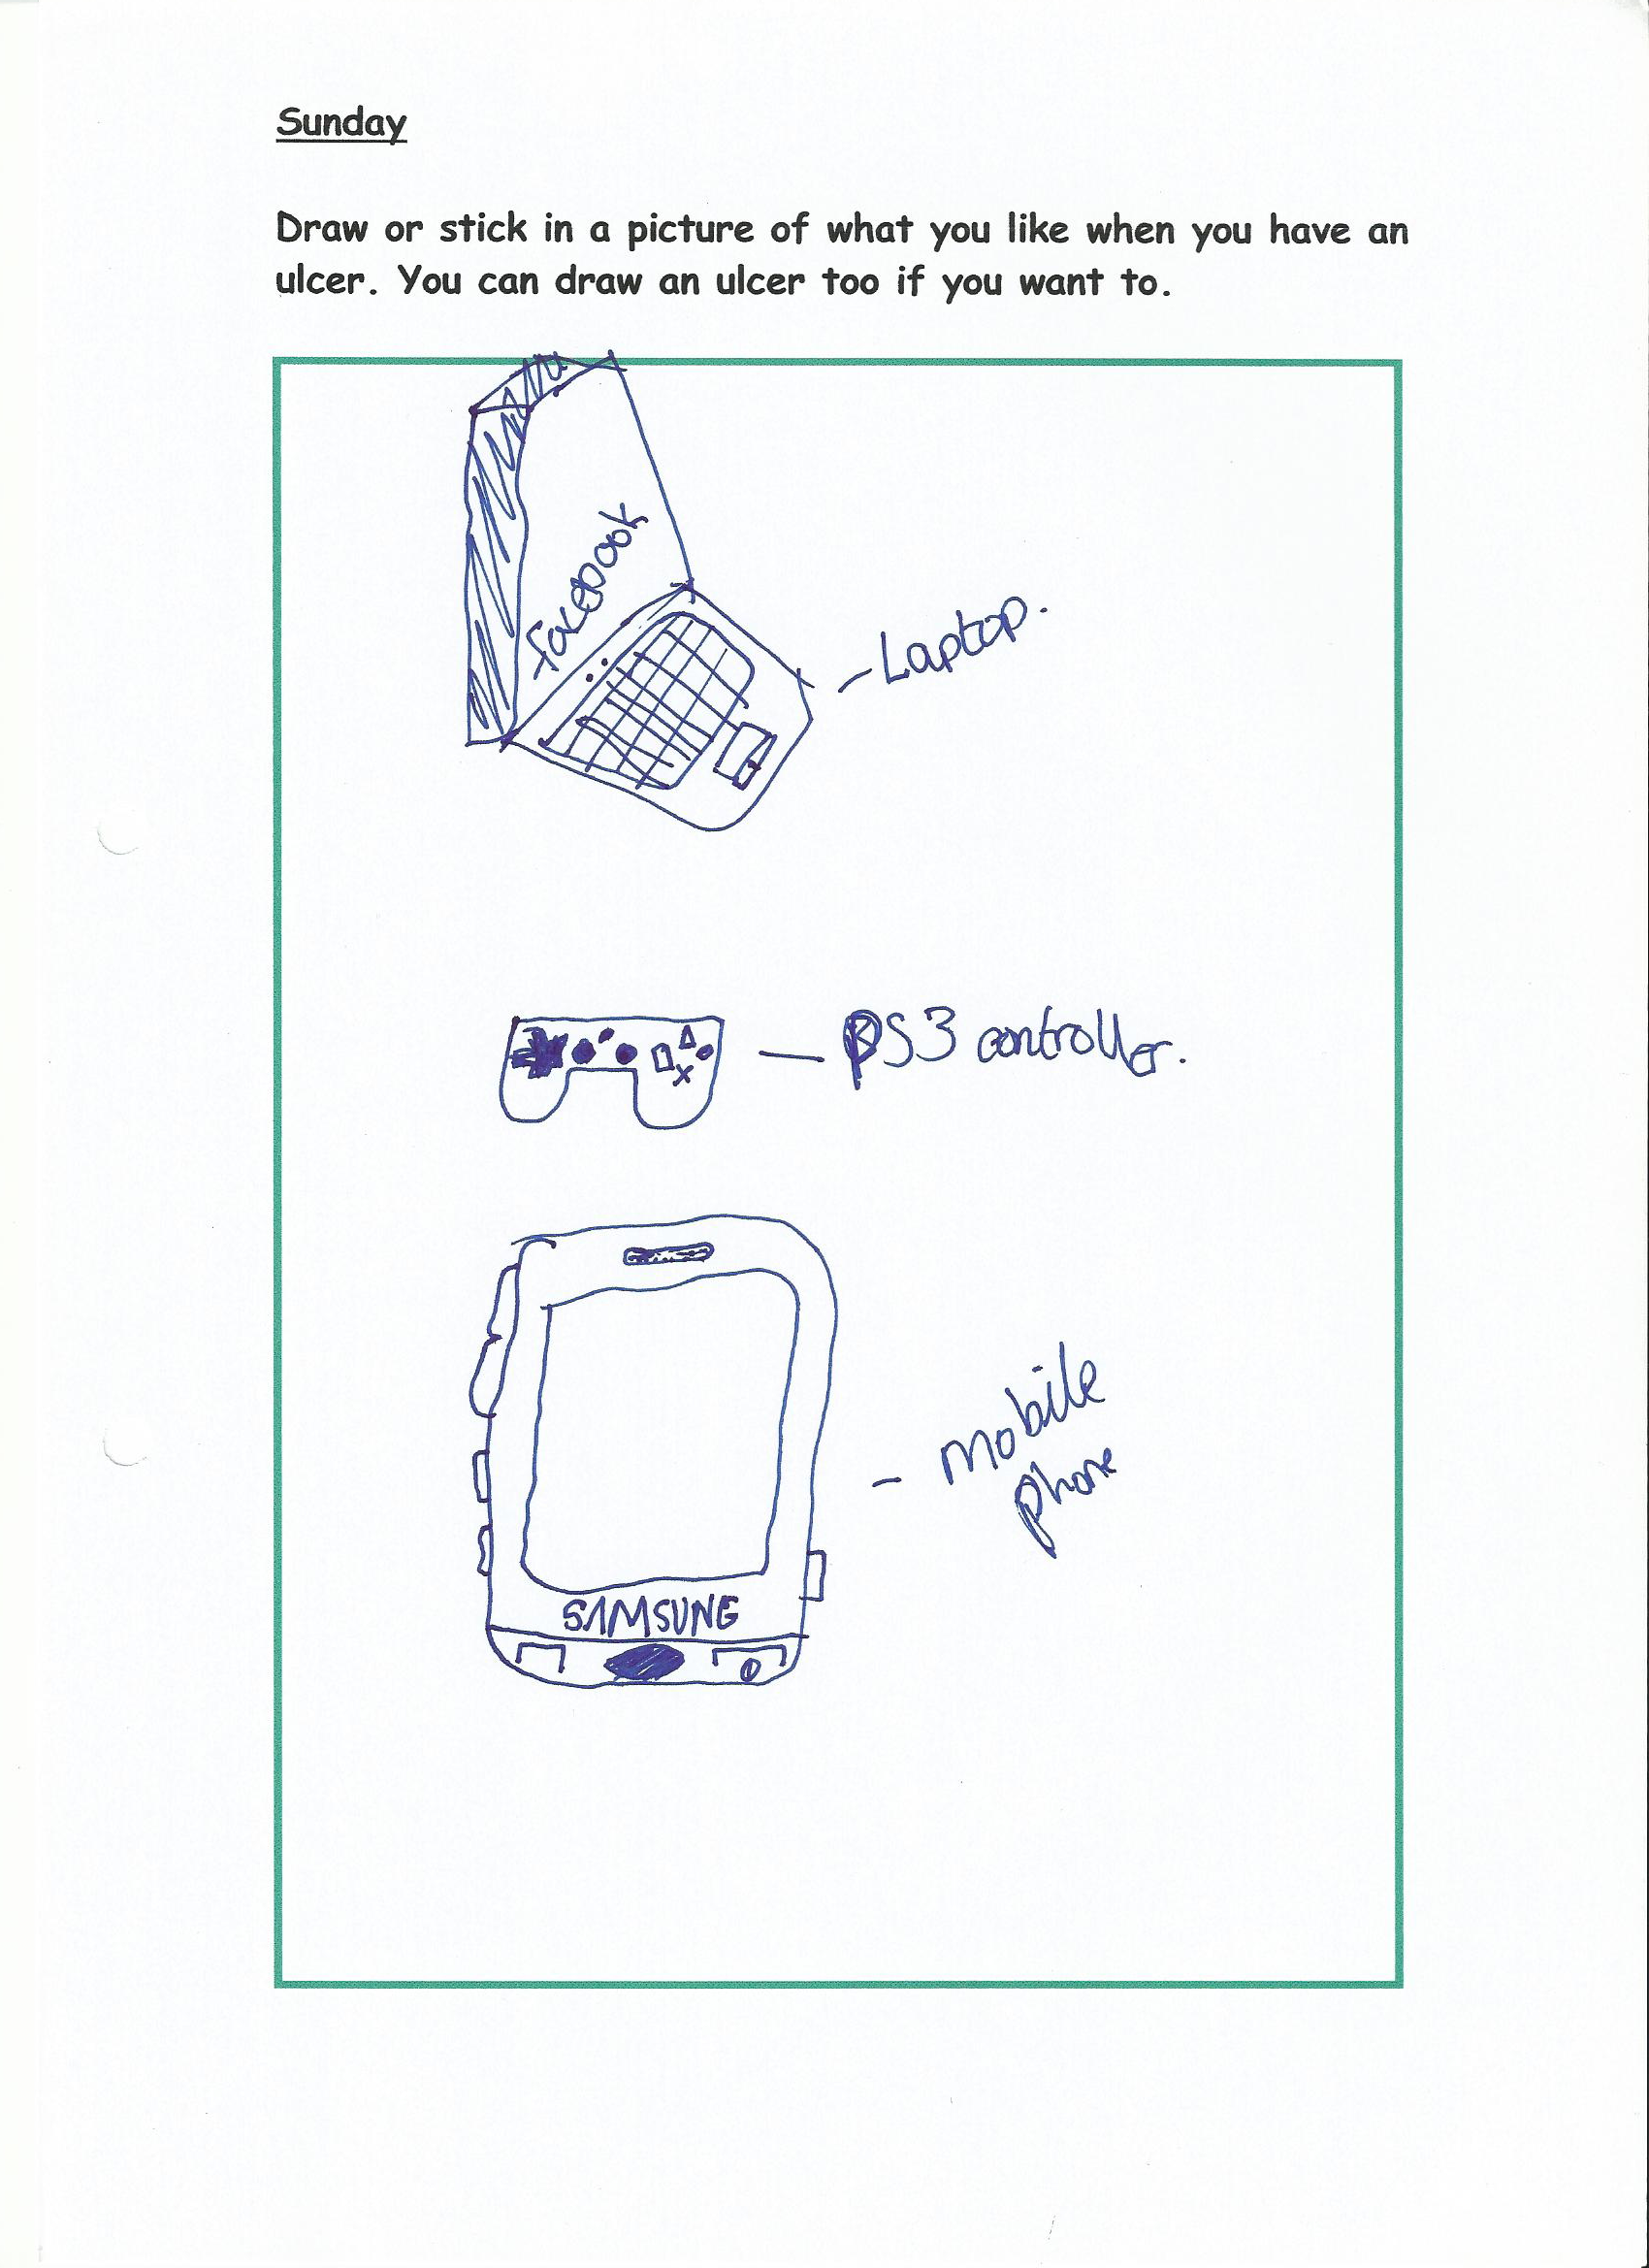 Sunday
Draw or stick in a picture of what you like when you have an
ulcer. You can draw an ulcer too if you want to.
facebook
- Laptop.
— PS3 controller.
- mobile
phone
SAMSUNG